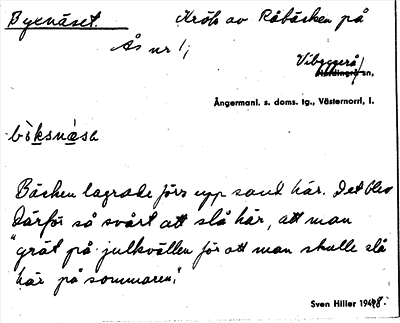 Byxnäset. Krök av Råbäcken på
Ås nr 1,
Vibyggerå
sn.
Ångermanl. s. doms. tg., Västernorrl, l.
bỳksnæ̀sə
Bäcken lagrade förr upp sand här. Det blev
därför så svårt att slå här, att man
"grät på julkvällen för att man skulle slå
här på sommaren".
Sven Hiller 1948.